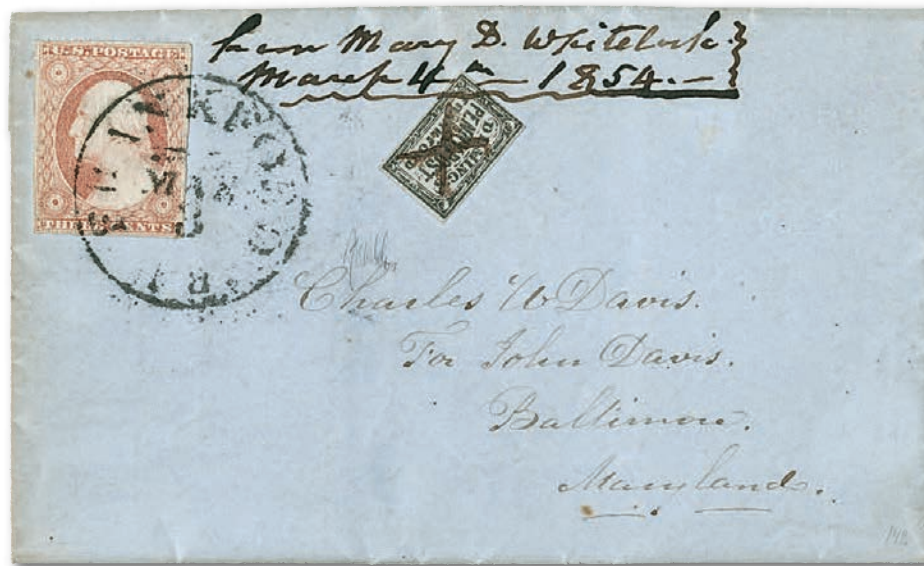 U.S. POSTAGE
THREE CENTS
from Mary D. Whitelock.
March 4th 1854.-
FRANKFORD
MAR
PA
Charles W Davis.
For John Davis.
Baltimore.
Maryland.